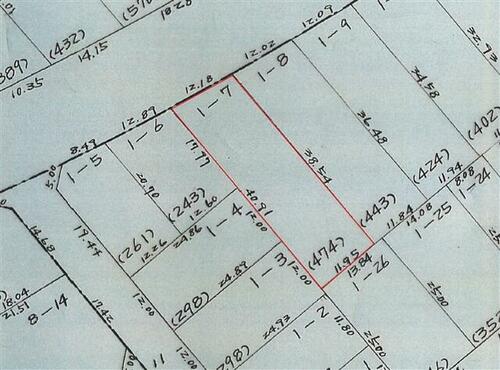 (570
18.28
(432)
14.15
389)
10.35
12.09
1-9
12.02
1-8
12.18
1-7
12.89
1-6
8.49
1-5
5.00
32.73
34.58
36.48
38.54
(402)
(424)
11.94
8.08
1-24
(443)
11.84
14.08
1-25
17.77
20.70
(243)
12.60
40.91
12.00
1-4
(261)
12.26
24.86
(474)
11.95
13.84
1-26
19.44
14.68
1-3
12.00
24.89
(298)
12.00
18.04
21.51
8-14
17.42
1-2
24.93
11.80
25.00
25.00
(352
298)
12.00
11